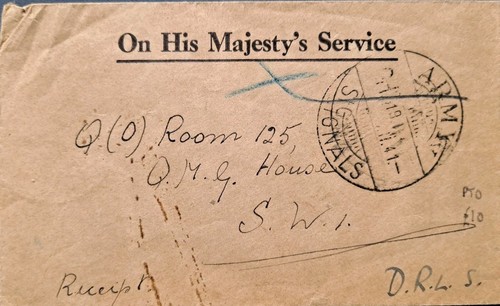 On His Majesty's Service
ARMY
SIGNALS
Q (O) Room 125,
Q.M.G. House
S.W.1.
PTO
£10
Receipt
D.R.L.S.